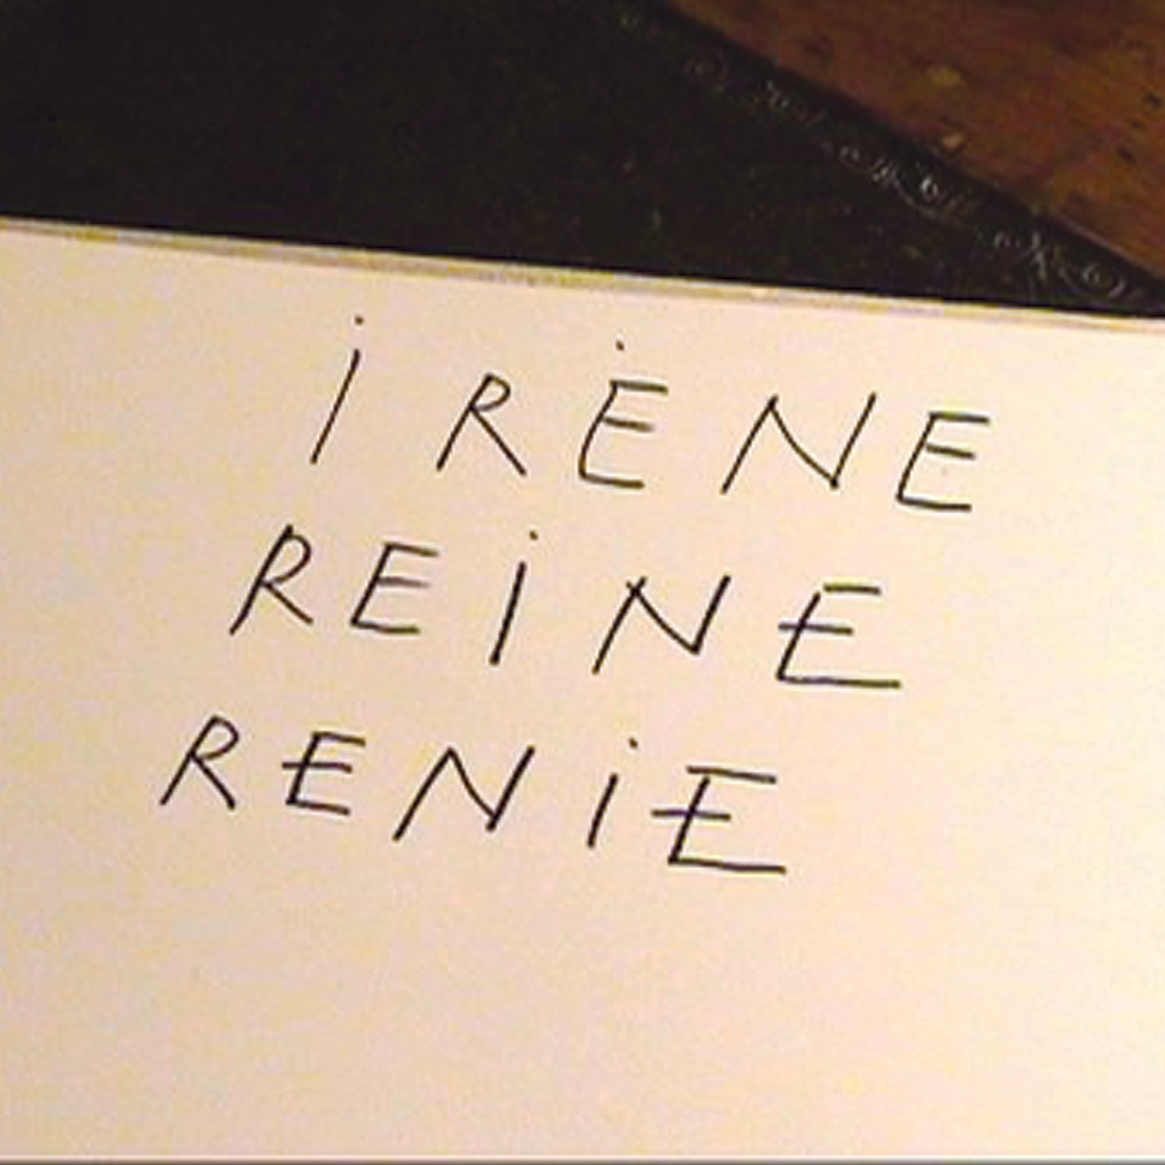 iRĖNE
REiNE
RENiE